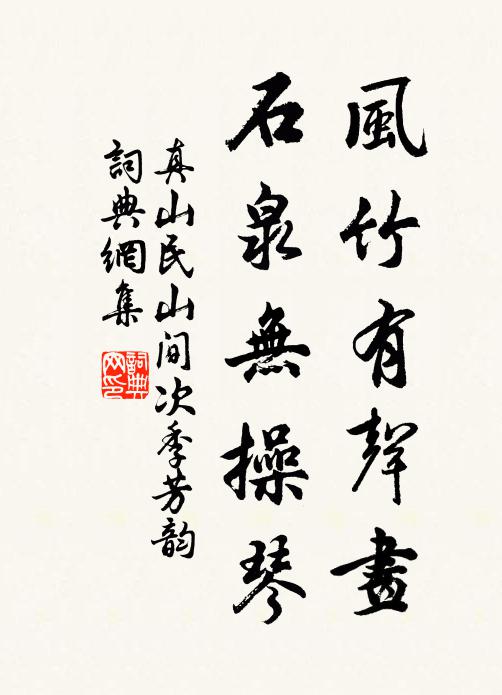 風竹有聲畫
石泉無操琴
真山民山间次季芳韵
詞典網集
詞典网印